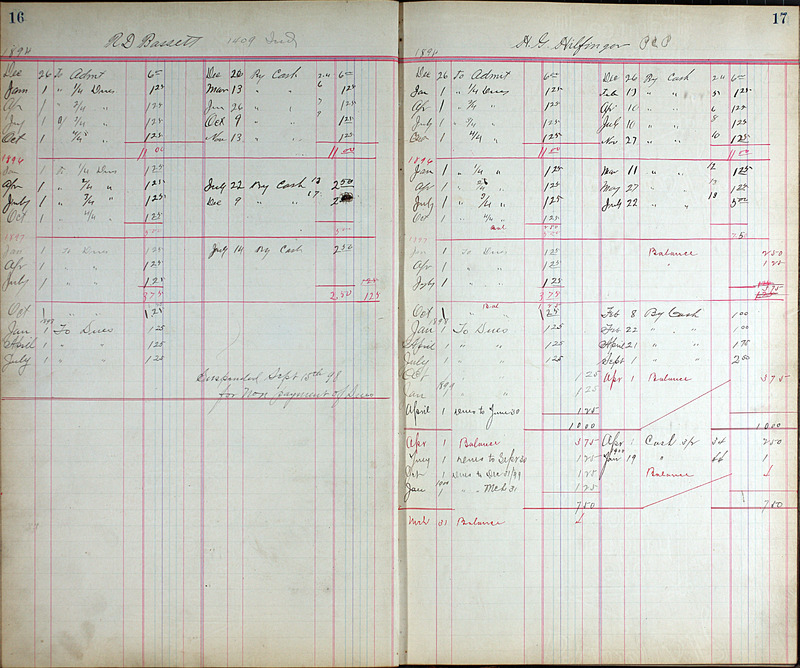 16
R D Bassett 1409 Ind
1894
Dec 26 To Admt 6 00 Dec 26 By Cash 24 6 00
Jan 1 " 1/4 Dues 1 25 Mar 13 " " 6 1 25
Apr 1 " 2/4 " 1 25 Jun 26 " " 7 1 25
July 1 " 3/4 " 1 25 Oct 9 " " 1 25
Oct 1 " 4/4 " 1 25 Nov 13 " " 1 25
11 00 11 00
1896
Jan 1 To 1/4 Dues 1 25
Apr 1 " 2/4 " 1 25 July 22 By Cash 13 2 50
July 1 " 3/4 " 1 25 Dec 9 " " 17
Oct 1 " 4/4 " 1 25
5 00 5 00
1897
Jan 1 To Dues 1 25 July 14 By Cash 2 50
Apr 1 " " 1 25
July 1 " " 1 25 1 25
3 75 2 50 1 25
Oct 1 " " 1 25
Jan 1 To Dues 1 25
April 1 " " 1 25
July 1 " " 1 25
Suspended Sept 15th 98
for Non payment of Dues
17
H. G. Hilfinger P C P
1894
Dec 26 To Admt 6 00 Dec 26 By Cash 24 6 00
Jan 1 " 1/4 Dues 1 25 Feb 13 " " 5 1 25
Apr 1 " 2/4 " 1 25 Apr 10 " " 6 1 25
July 1 " 3/4 " 1 25 July 10 " " 8 1 25
Oct 1 " 4/4 " 1 25 Nov 27 " " 10 1 25
11 00 11 00
1896
Jan 1 " 1/4 " 1 25 Mar 11 " " 12 1 25
Apr 1 " 2/4 " 1 25 May 27 " " 13 1 25
July 1 " 3/4 " 1 25 July 22 " " 18 5 00
Oct 1 " 4/4 " 1 25
Bal 2 50
7 50
1897
Jan 1 To Dues 1 25 Balance 2 50
Apr 1 " " 1 25 " 1 25
July 1 " " 1 25
3 75 3 75
Bal
Oct 1 " " 1 25 Feb 8 By Cash 1 00
Jan 1898 1 To Dues 1 25 Feb 22 " " 1 00
April 1 " " 1 25 April 21 " " 1 75
July 1 " " 1 25 Sept 1 " " 2 00
Oct 1 25 Apr 1 Balance 3 75
Jan 1899 " 1 25
April 1 Dues to June 30 1 25
10 00 10 00
Apr 1 Balance 3 75 Apr 1 Cash S/P 34 2 50
July 1 Dues to Sept 30 1 25 Jan 1900 19 " 66 1
Oct 1 Dues to Dec 31/99 1 25 Balance
Jan 1900 1 " " Mch 31 1 25
7 50 7 50
Mch 31 Balance